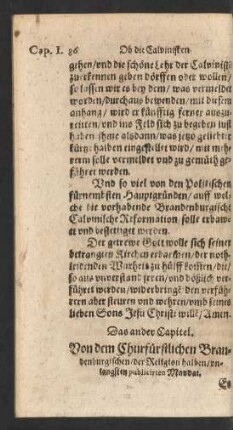 Cap. I. 86 Ob die Calvinisten
gehen/vnd die schöne Lehr der Calvinisten
zuerkennen geben dörffen oder wollen/
so lassen wir es bey dem/ was vermeldet
worden/durchaus bewenden/mit diesem
anhang/ wird er künfftig ferner auszu-
reitten/vnd ins Feld sich zu begeben lust
haben
kürtze halben eingestellet wird/ mit meh-
rerm solle vermeldet vnd zu gemüth ge-
führet werden.
Vnd so viel von den Politischen
fürnembsten Hauptgründen/ auff wel-
che die vorhabende Brandenburgische
Calvinische Reformation solle erbaw-
et vnd bestetiget werden.
Der getrewe Gott wolle sich seiner
betrangten Kirchen erbarmen/ der noth-
leidenden Warheit zu hülff kommen/die/
so aus vnverstand jrren/ vnd ver
führet werden/ wiederbringẽ den verfüh-
rern aber stewren vnd wehren/vmb seines
lieben Sons Jesu Christi willẽ/ Amen.
Das ander Capitel.
Von dem Churfürstlichen Bran-
denburgischen/der Religion halben/vn-
langsten publicirten Mandat.
Es